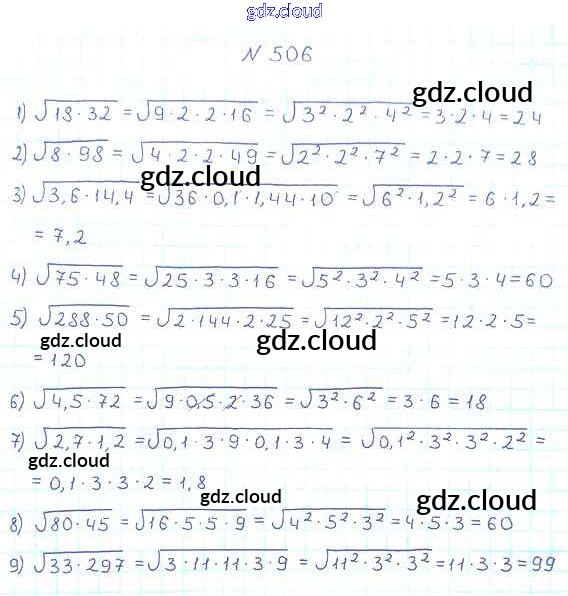 gdz.cloud
N 506
gdz.cloud
1) √18 · 32 = √9 · 2 · 2 · 16 = √3² · 2² · 4² = 3 · 2 · 4 = 24
2) √8 · 98 = √4 · 2 · 2 · 49 = √2² · 2² · 7² = 2 · 2 · 7 = 28
gdz.cloud
gdz.cloud
3) √3,6 · 14,4 = √36 · 0,1 · 1,44 · 10 = √6² · 1,2² = 6 · 1,2 =
= 7,2
4) √75 · 48 = √25 · 3 · 3 · 16 = √5² · 3² · 4² = 5 · 3 · 4 = 60
5) √288 · 50 = √2 · 144 · 2 · 25 = √12² · 2² · 5² = 12 · 2 · 5 =
gdz.cloud
gdz.cloud
= 120
6) √4,5 · 72 = √9 · 0,5 · 2 · 36 = √3² · 6² = 3 · 6 = 18
7) √2,7 · 1,2 = √0,1 · 3 · 9 · 0,1 · 3 · 4 = √0,1² · 3² · 3² · 2² =
gdz.cloud
= 0,1 · 3 · 3 · 2 = 1,8
gdz.cloud
gdz.cloud
8) √80 · 45 = √16 · 5 · 5 · 9 = √4² · 5² · 3² = 4 · 5 · 3 = 60
9) √33 · 297 = √3 · 11 · 11 · 3 · 9 = √11² · 3² · 3² = 11 · 3 · 3 = 99